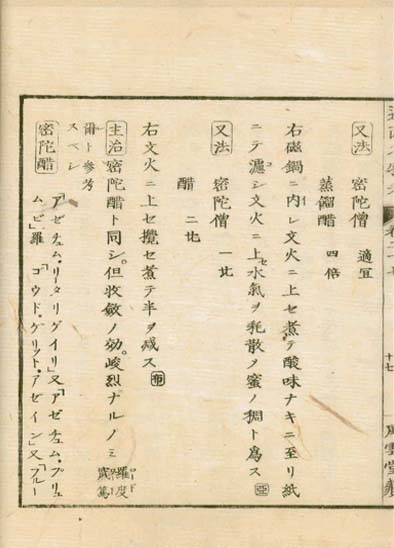 又法 密陀僧 適宜
蒸餾醋 四倍
右磁鍋ニ内レ文火ニ上セ煮テ酸味ナキニ至リ紙
ニテ濾シ文火ニ上セ水氣ヲ耗散シ蜜ノ稠ト爲ス
又法 密陀僧 一比
醋 二比
右文火ニ上セ攪セ煮テ半ヲ减ス 布
主治 密陀醋ト同シ。但收斂ノ効。峻烈ナルノミ 羅度
爾ト參考
スベシ
密陀醋 「アゼチュム・リータリゲイリ」又「アゼチュム・プリュ
ム。ビ」羅 「ゴウド・ゲリット・アゼイン」又「ブルー
十七
風雲堂